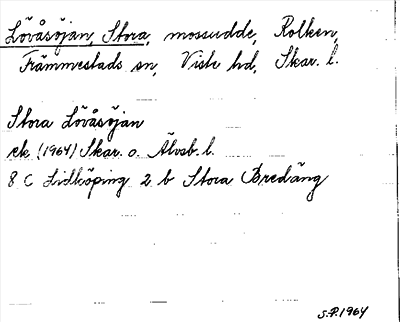 Lövåsöjan, Stora, mossudde, Rolken,
Främmestads sn, Viste hd, Skar. l.
Stora Lövåsöjan
ek (1964) Skar. o. Älvsb. l.
8 C Lidköping 2 b Stora Bredäng
S.P. 1964